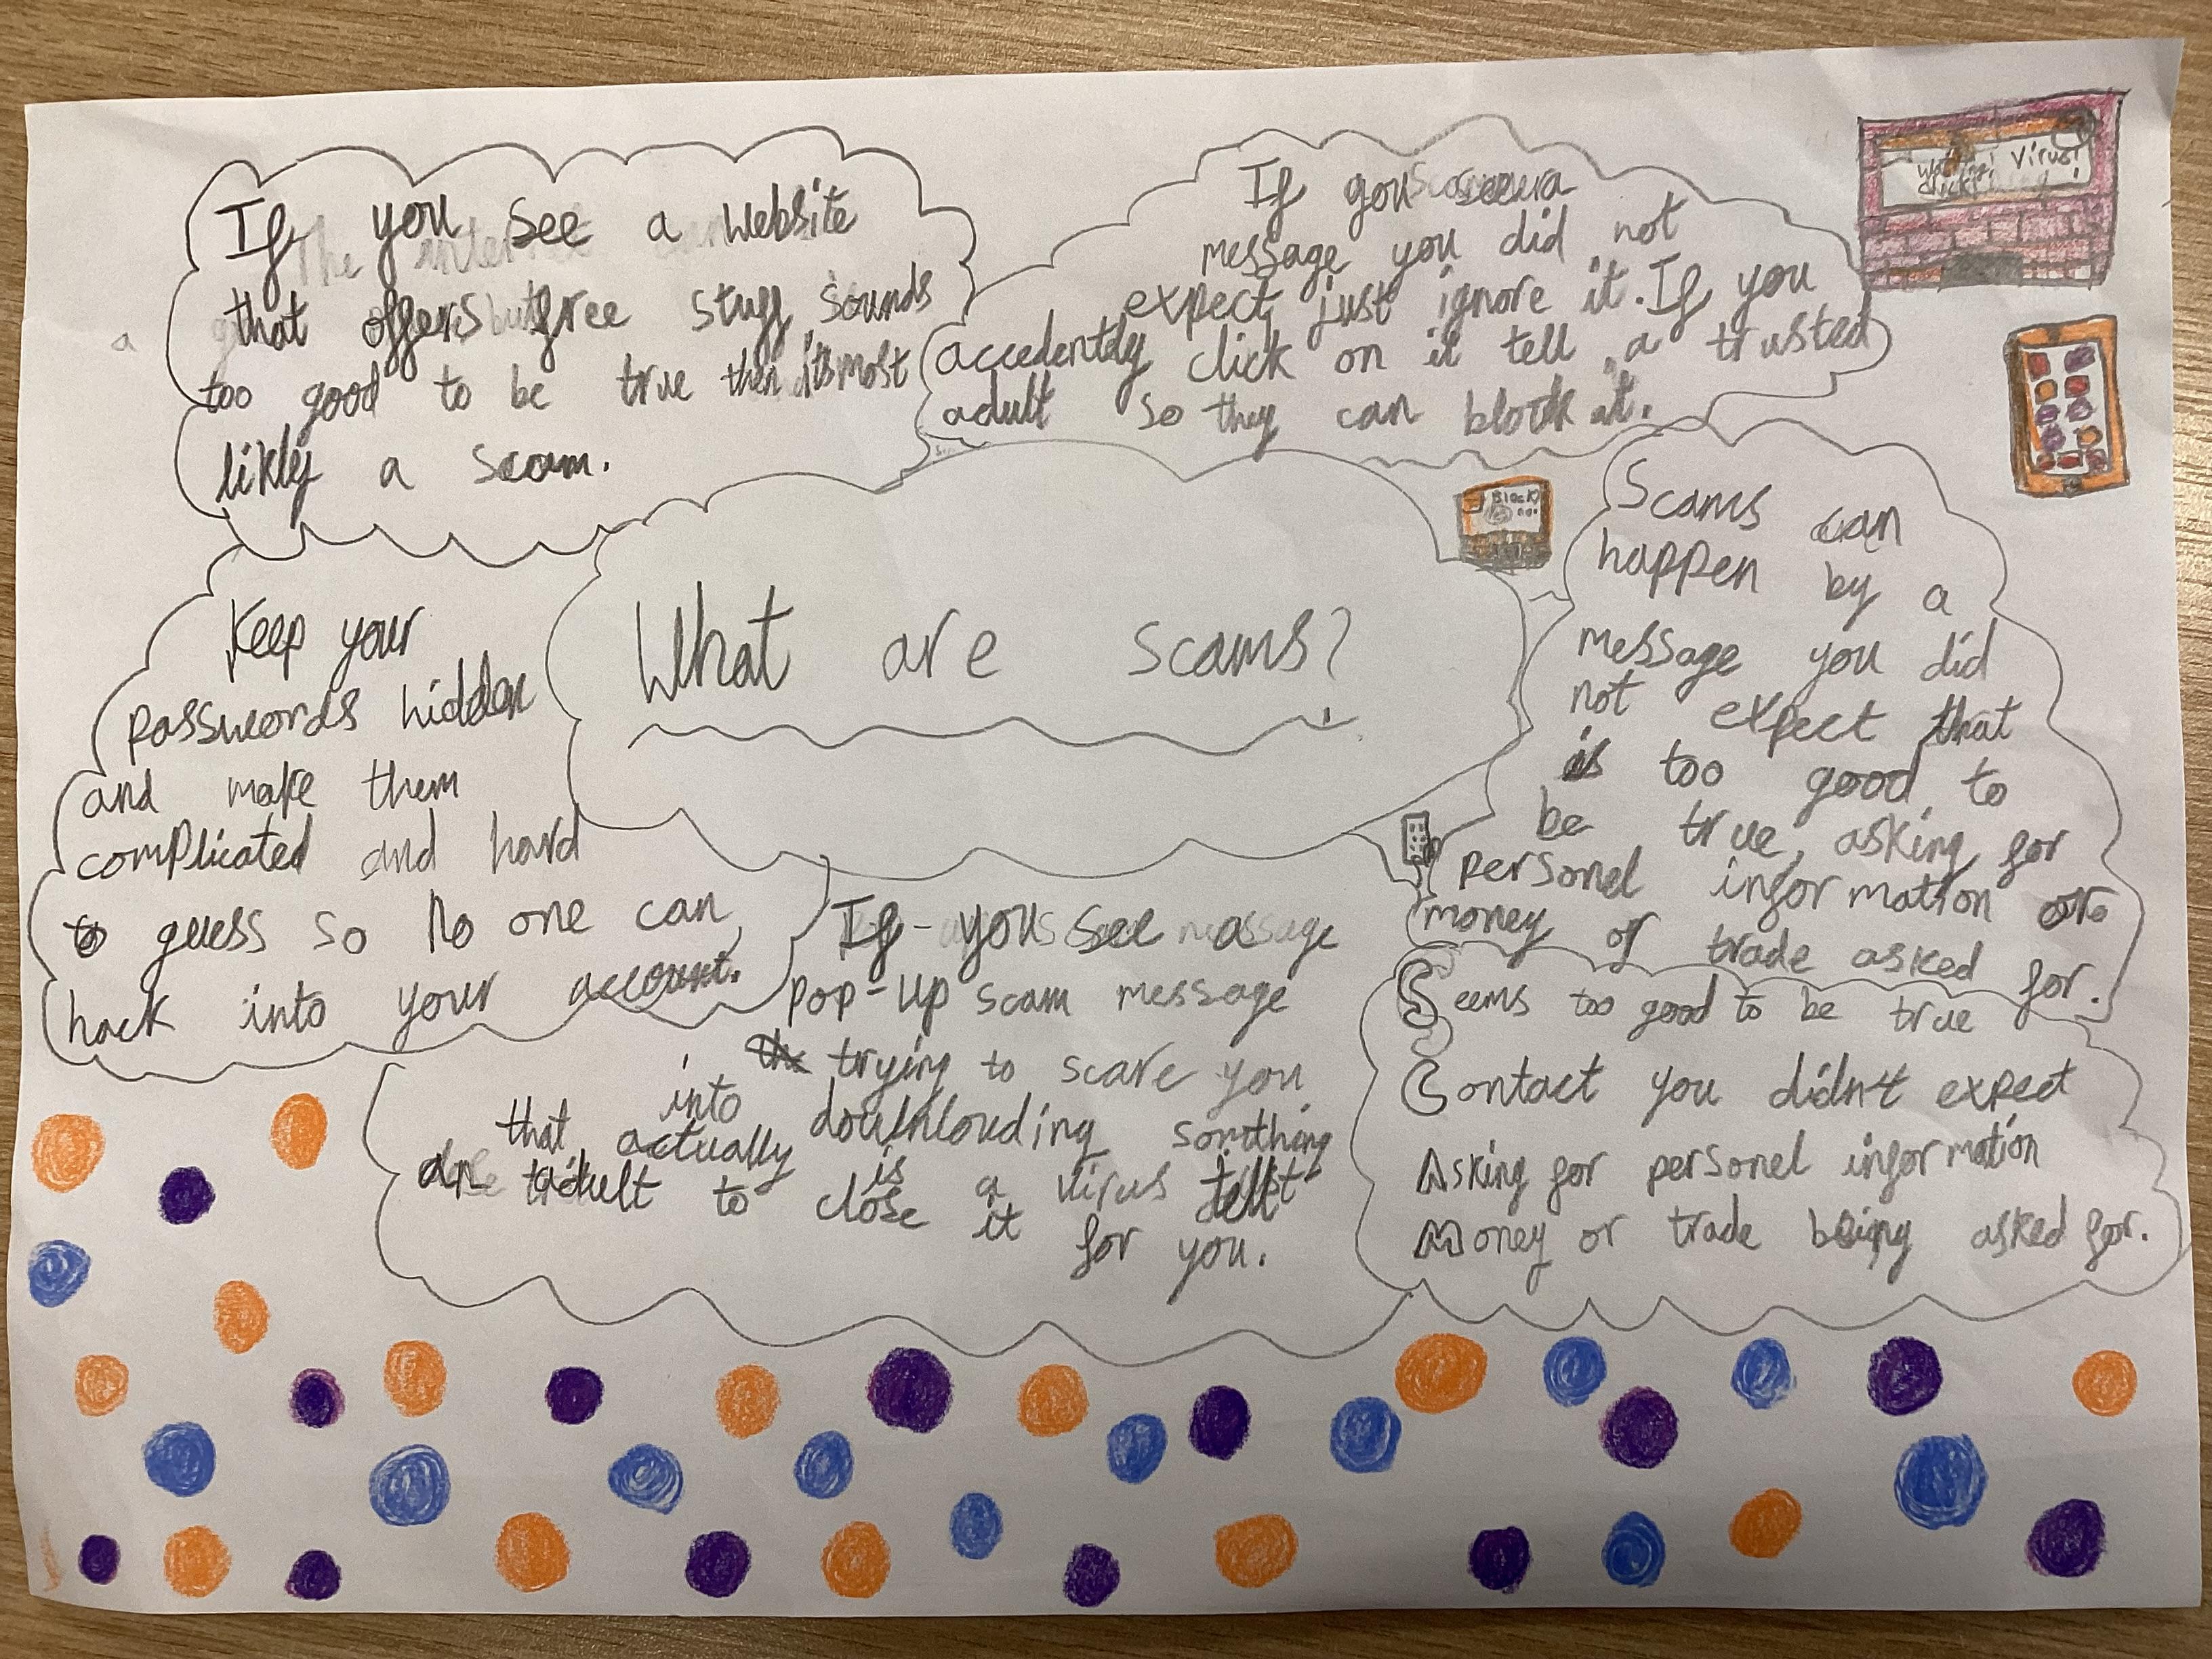 If you see a website
that offers free stuff, sounds
too good to be true then its most
likly a scam.
If you see a
message you did not
expect just ignore it. If you
accedentdly click on it tell a trusted
adult so they can block it.
Warning! Virus!
click!
Block
What are scams?
Keep your
passwords hidden
and make them
complicated and hard
to guess so no one can
hack into your account.
Scams can
happen by a
message you did
not expect that
is too good to
be true, asking for
personel information or
money or trade asked for.
If you see a
pop-up scam message
trying to scare you
into downlouding somthing
that actually is a virus tell
an adult to close it for you.
Seems too good to be true
Contact you didn't expect
Asking for personel information
Money or trade being asked for.